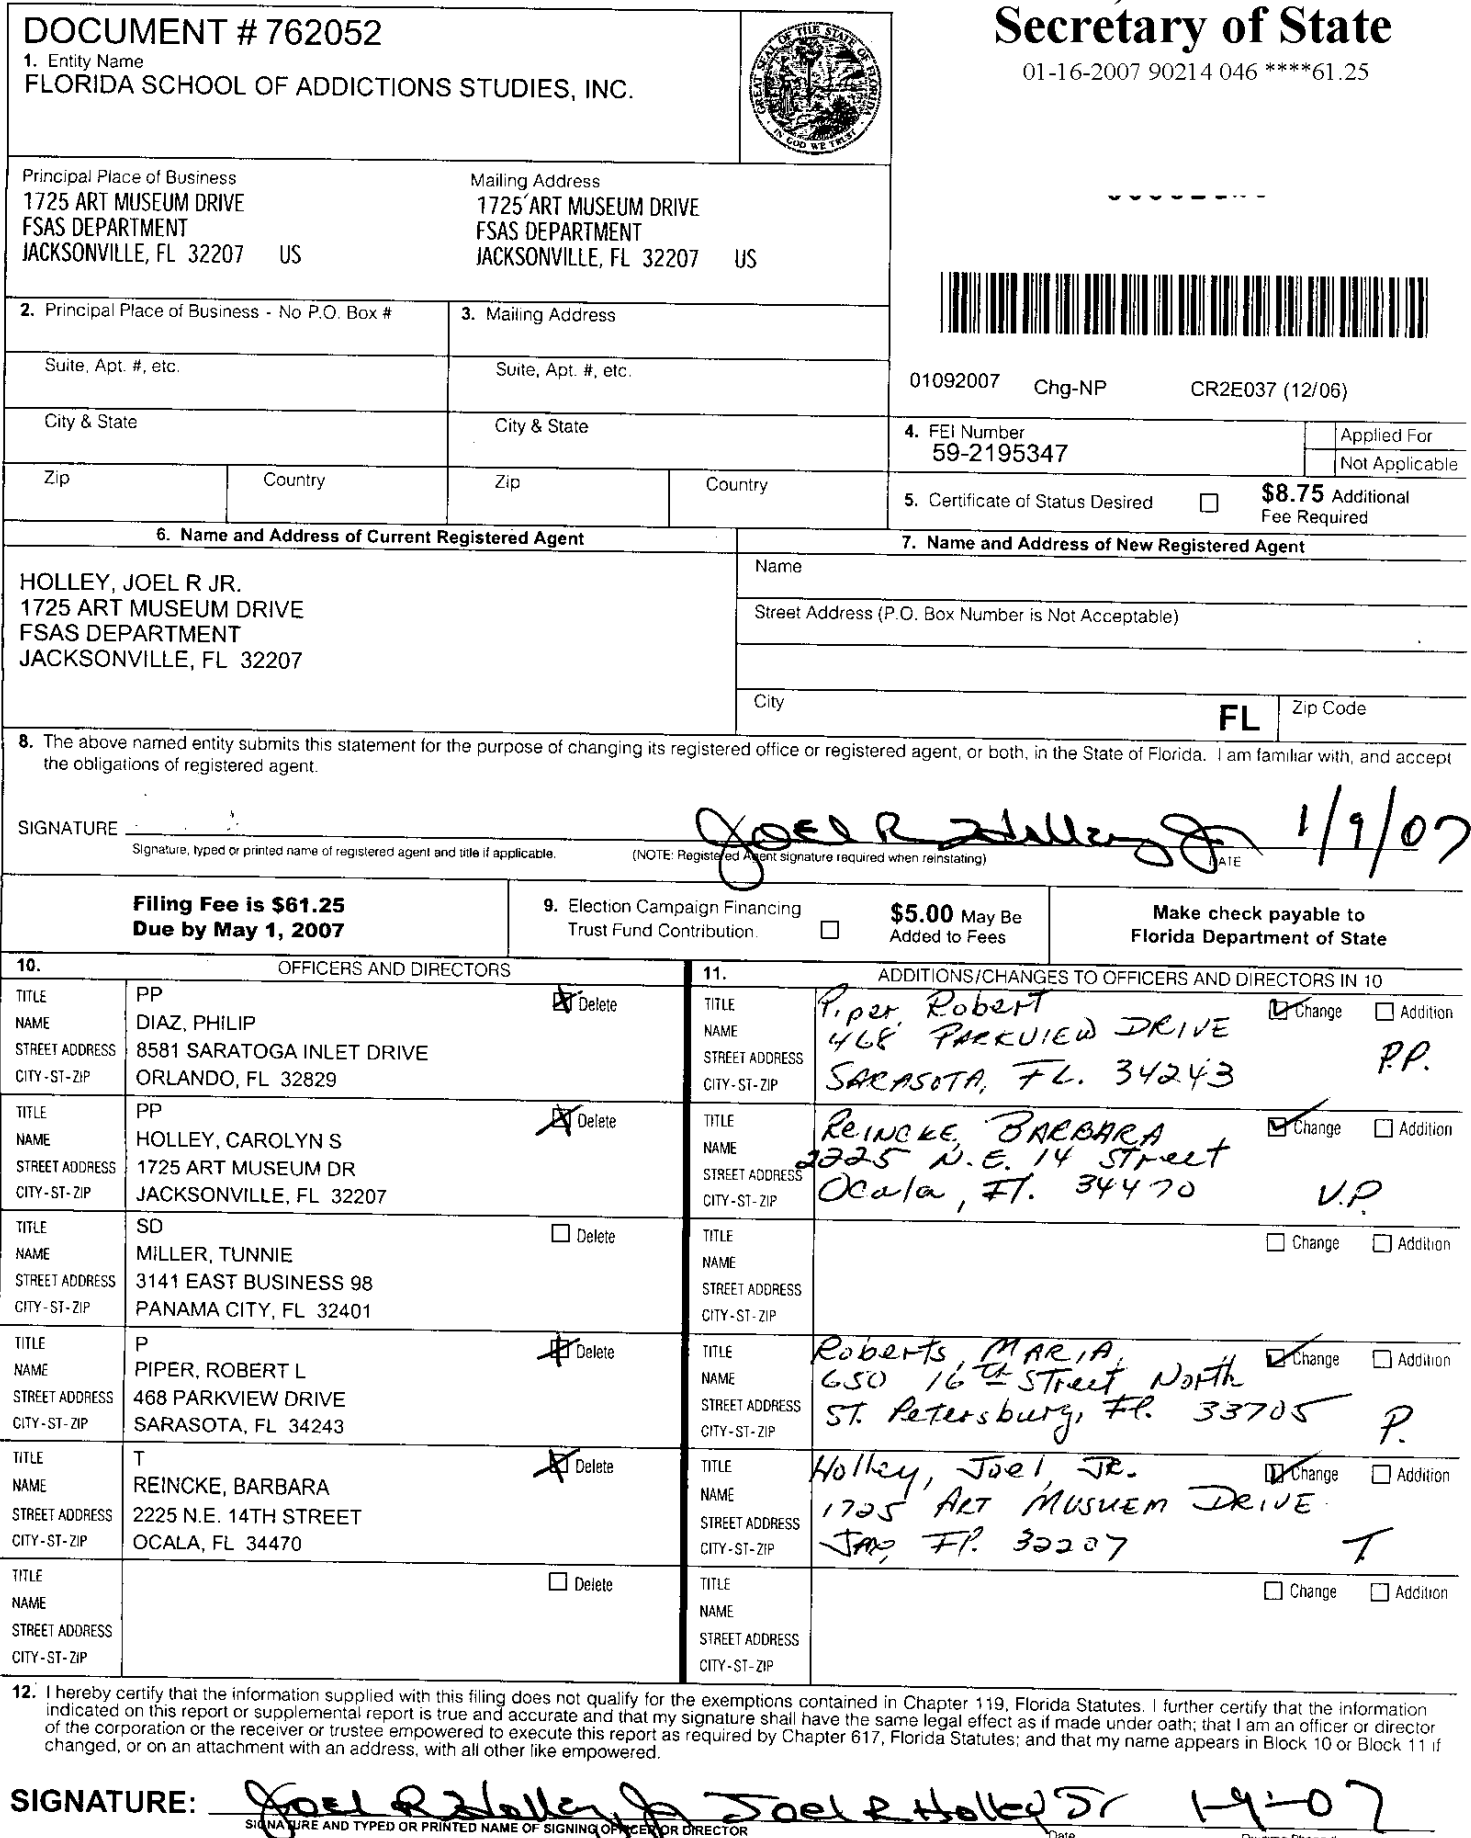 DOCUMENT # 762052
1. Entity Name
FLORIDA SCHOOL OF ADDICTIONS STUDIES, INC.
GREAT SEAL OF THE STATE OF FLORIDA
IN GOD WE TRUST
Secretary of State
01-16-2007 90214 046 ****61.25
Principal Place of Business
1725 ART MUSEUM DRIVE
FSAS DEPARTMENT
JACKSONVILLE, FL 32207 US
Mailing Address
1725 ART MUSEUM DRIVE
FSAS DEPARTMENT
JACKSONVILLE, FL 32207 US
2. Principal Place of Business - No P.O. Box #
3. Mailing Address
Suite, Apt. #, etc.
Suite, Apt. #, etc.
City & State
City & State
Zip Country
Zip Country
01092007 Chg-NP CR2E037 (12/06)
4. FEI Number
59-2195347
Applied For
Not Applicable
5. Certificate of Status Desired
$8.75 Additional
Fee Required
6. Name and Address of Current Registered Agent
HOLLEY, JOEL R JR.
1725 ART MUSEUM DRIVE
FSAS DEPARTMENT
JACKSONVILLE, FL 32207
7. Name and Address of New Registered Agent
Name
Street Address (P.O. Box Number is Not Acceptable)
City FL Zip Code
8. The above named entity submits this statement for the purpose of changing its registered office or registered agent, or both, in the State of Florida. I am familiar with, and accept
the obligations of registered agent.
SIGNATURE Joel R Holley Jr 1/9/07
Signature, typed or printed name of registered agent and title if applicable. (NOTE: Registered Agent signature required when reinstating) DATE
Filing Fee is $61.25
Due by May 1, 2007
9. Election Campaign Financing
Trust Fund Contribution.
$5.00 May Be
Added to Fees
Make check payable to
Florida Department of State
10. OFFICERS AND DIRECTORS
TITLE PP Delete
NAME DIAZ, PHILIP
STREET ADDRESS 8581 SARATOGA INLET DRIVE
CITY-ST-ZIP ORLANDO, FL 32829
TITLE PP Delete
NAME HOLLEY, CAROLYN S
STREET ADDRESS 1725 ART MUSEUM DR
CITY-ST-ZIP JACKSONVILLE, FL 32207
TITLE SD Delete
NAME MILLER, TUNNIE
STREET ADDRESS 3141 EAST BUSINESS 98
CITY-ST-ZIP PANAMA CITY, FL 32401
TITLE P Delete
NAME PIPER, ROBERT L
STREET ADDRESS 468 PARKVIEW DRIVE
CITY-ST-ZIP SARASOTA, FL 34243
TITLE T Delete
NAME REINCKE, BARBARA
STREET ADDRESS 2225 N.E. 14TH STREET
CITY-ST-ZIP OCALA, FL 34470
TITLE Delete
NAME
STREET ADDRESS
CITY-ST-ZIP
11. ADDITIONS/CHANGES TO OFFICERS AND DIRECTORS IN 10
TITLE Piper, Robert Change Addition
NAME 468 PARKVIEW DRIVE
STREET ADDRESS P.P.
CITY-ST-ZIP SARASOTA, FL. 34243
TITLE REINCKE, BARBARA Change Addition
NAME 2225 N.E. 14 Street
STREET ADDRESS
CITY-ST-ZIP Ocala, Fl. 34470 V.P
TITLE Change Addition
NAME
STREET ADDRESS
CITY-ST-ZIP
TITLE Roberts, MARIA, Change Addition
NAME 650 16th Street North
STREET ADDRESS St. Petersburg, Fl. 33705
CITY-ST-ZIP P.
TITLE Holley, Joel, JR. Change Addition
NAME 1725 ART MUSUEM DRIVE
STREET ADDRESS
CITY-ST-ZIP JAX, Fl. 32207 T.
TITLE Change Addition
NAME
STREET ADDRESS
CITY-ST-ZIP
12. I hereby certify that the information supplied with this filing does not qualify for the exemptions contained in Chapter 119, Florida Statutes. I further certify that the information
indicated on this report or supplemental report is true and accurate and that my signature shall have the same legal effect as if made under oath; that I am an officer or director
of the corporation or the receiver or trustee empowered to execute this report as required by Chapter 617, Florida Statutes; and that my name appears in Block 10 or Block 11 if
changed, or on an attachment with an address, with all other like empowered.
SIGNATURE: Joel R Holley, Jr Joel R Holley Jr 1-9-07
SIGNATURE AND TYPED OR PRINTED NAME OF SIGNING OFFICER OR DIRECTOR Date